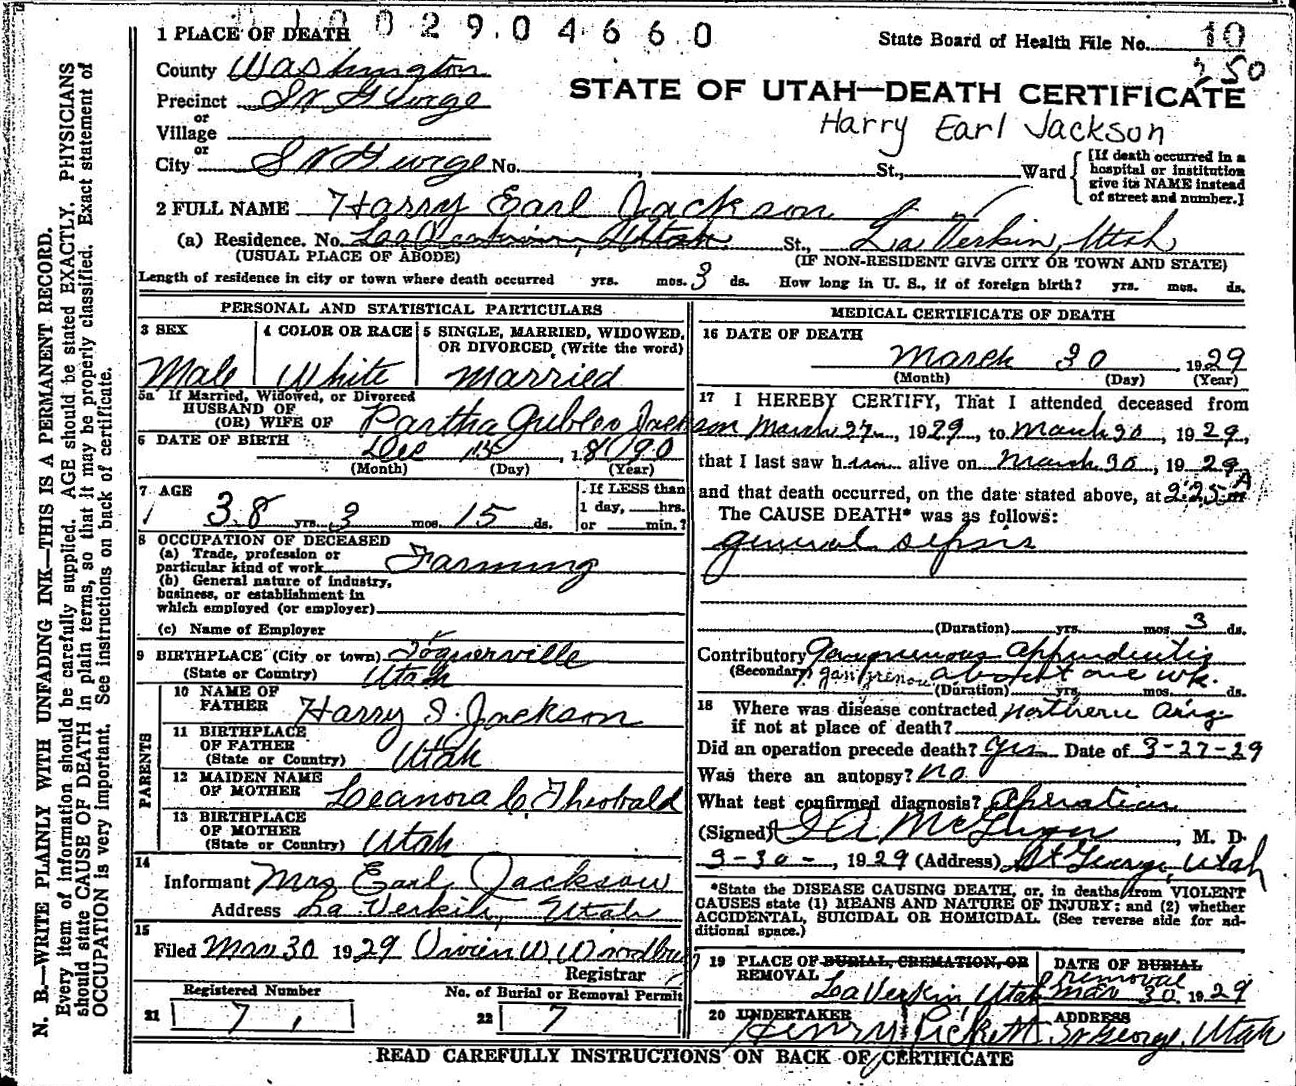 10029.04660
1 PLACE OF DEATH
State Board of Health File No. 10
250
County Washington
STATE OF UTAH—DEATH CERTIFICATE
Precinct St George
or
Harry Earl Jackson
Village
or
City St George No. , St., Ward
[If death occurred in a
hospital or institution
give its NAME instead
of street and number.]
2 FULL NAME Harry Earl Jackson
(a) Residence. No. La Verkin, Utah St., La Verkin, Utah
(USUAL PLACE OF ABODE) (IF NON-RESIDENT GIVE CITY OR TOWN AND STATE)
Length of residence in city or town where death occurred yrs. mos. 3 ds. How long in U. S., if of foreign birth? yrs. mos. ds.
PERSONAL AND STATISTICAL PARTICULARS
3 SEX 4 COLOR OR RACE 5 SINGLE, MARRIED, WIDOWED,
OR DIVORCED, (Write the word)
Male White Married
5a If Married, Widowed, or Divorced
HUSBAND OF
(OR) WIFE OF Partha Gubler Jackson
6 DATE OF BIRTH Dec 15, 1890
(Month) (Day) (Year)
7 AGE
38 yrs. 3 mos. 15 ds.
If LESS than
1 day, hrs.
or min.?
8 OCCUPATION OF DECEASED
(a) Trade, profession or
particular kind of work Farming
(b) General nature of industry,
business, or establishment in
which employed (or employer)
(c) Name of Employer
9 BIRTHPLACE (City or town) Toquerville
(State or Country) Utah
PARENTS
10 NAME OF
FATHER Harry S. Jackson
11 BIRTHPLACE
OF FATHER
(State or Country) Utah
12 MAIDEN NAME
OF MOTHER Leanora C Theobald
13 BIRTHPLACE
OF MOTHER
(State or Country) Utah
14
Informant Mrs Earl Jackson
Address La Verkin, Utah
15
Filed Mar 30 1929 Vivien W. Woodbury
Registrar
Registered Number No. of Burial or Removal Permit
21 7 22 7
MEDICAL CERTIFICATE OF DEATH
16 DATE OF DEATH
March 30, 1929
(Month) (Day) (Year)
17 I HEREBY CERTIFY, That I attended deceased from
March 27, 1929, to March 30, 1929,
that I last saw him alive on March 30, 1929
and that death occurred, on the date stated above, at 2:25 A m
The CAUSE DEATH* was as follows:
general sepsis
(Duration) yrs. mos. 3 ds.
Contributory Gangrenous appendicitis
(Secondary) gangrenous about one wk.
(Duration) yrs. mos. ds.
18 Where was disease contracted Northern Ariz
if not at place of death?
Did an operation precede death? Yes Date of 3-27-29
Was there an autopsy? no
What test confirmed diagnosis? Operation
(Signed) , M. D.
3-30-, 1929 (Address) St George, Utah
*State the DISEASE CAUSING DEATH, or, in deaths from VIOLENT
CAUSES state (1) MEANS AND NATURE OF INJURY; and (2) whether
ACCIDENTAL, SUICIDAL OR HOMICIDAL. (See reverse side for ad-
ditional space.)
19 PLACE OF BURIAL, CREMATION, OR
REMOVAL
La Verkin Utah
DATE OF BURIAL
removal
Mar 30, 1929
20 UNDERTAKER ADDRESS
Henry Pickett St George, Utah
READ CAREFULLY INSTRUCTIONS ON BACK OF CERTIFICATE
N. B.—WRITE PLAINLY WITH UNFADING INK—THIS IS A PERMANENT RECORD.
Every item of information should be carefully supplied. AGE should be stated EXACTLY. PHYSICIANS
should state CAUSE OF DEATH in plain terms, so that it may be properly classified. Exact statement of
OCCUPATION is very important. See instructions on back of certificate.